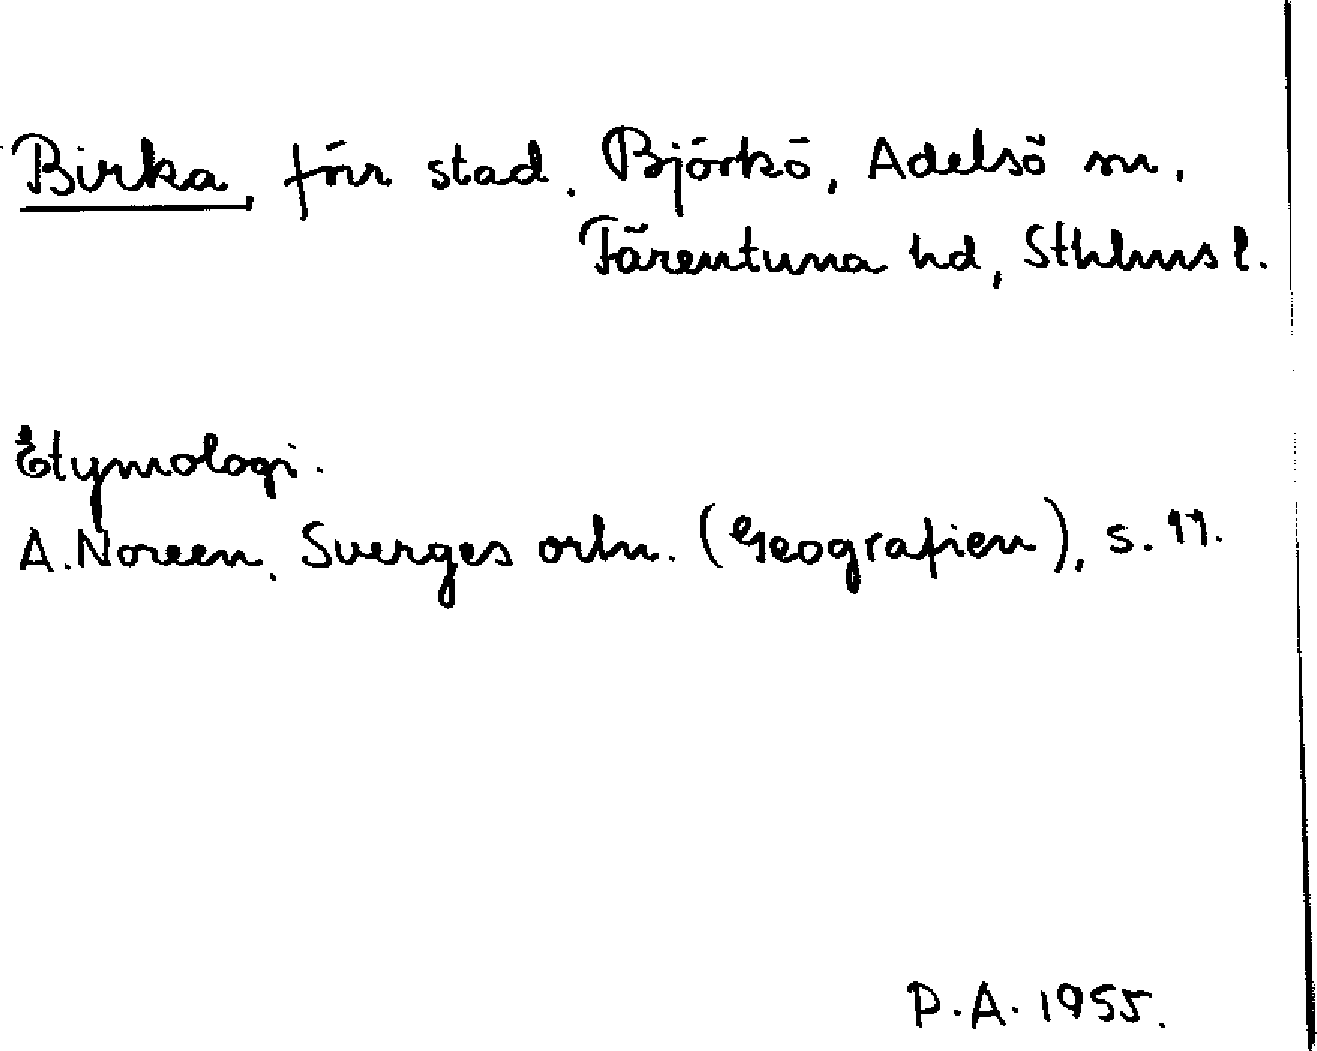 Birka, förr stad. Björkö, Adelsö sn.
Färentuna hd, Sthlms l.
Etymologi.
A. Noreen, Sverges ortn. (Geografien), s. 11.
P.A. 1955.